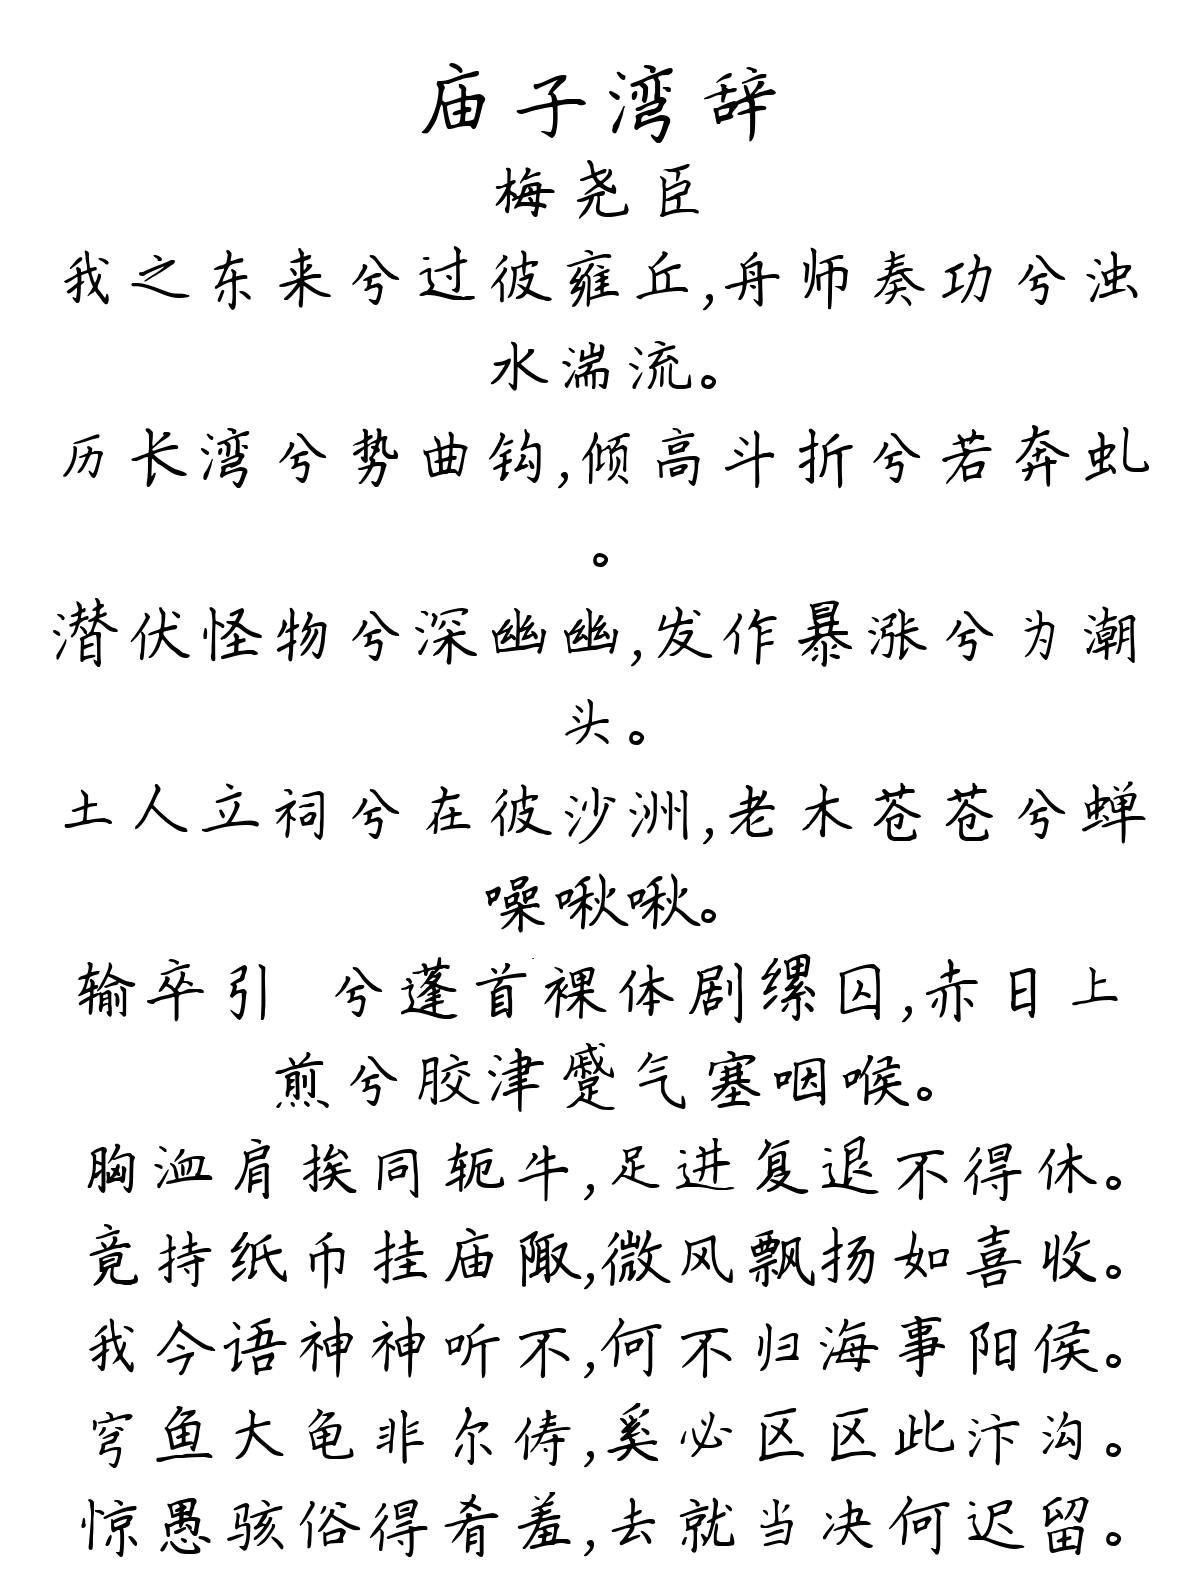 庙子湾辞
梅尧臣
我之东来兮过彼雍丘,舟师奏功兮浊
水湍流。
历长湾兮势曲钩,倾高斗折兮若奔虬
。
潜伏怪物兮深幽幽,发作暴涨兮为潮
头。
土人立祠兮在彼沙洲,老木苍苍兮蝉
噪啾啾。
输卒引 兮蓬首裸体剧缧囚,赤日上
煎兮胶津蹙气塞咽喉。
胸洫肩挨同轭牛,足进复退不得休。
竟持纸币挂庙陬,微风飘扬如喜收。
我今语神神听不,何不归海事阳侯。
穹鱼大龟非尔俦,奚必区区此汴沟。
惊愚骇俗得肴羞,去就当决何迟留。